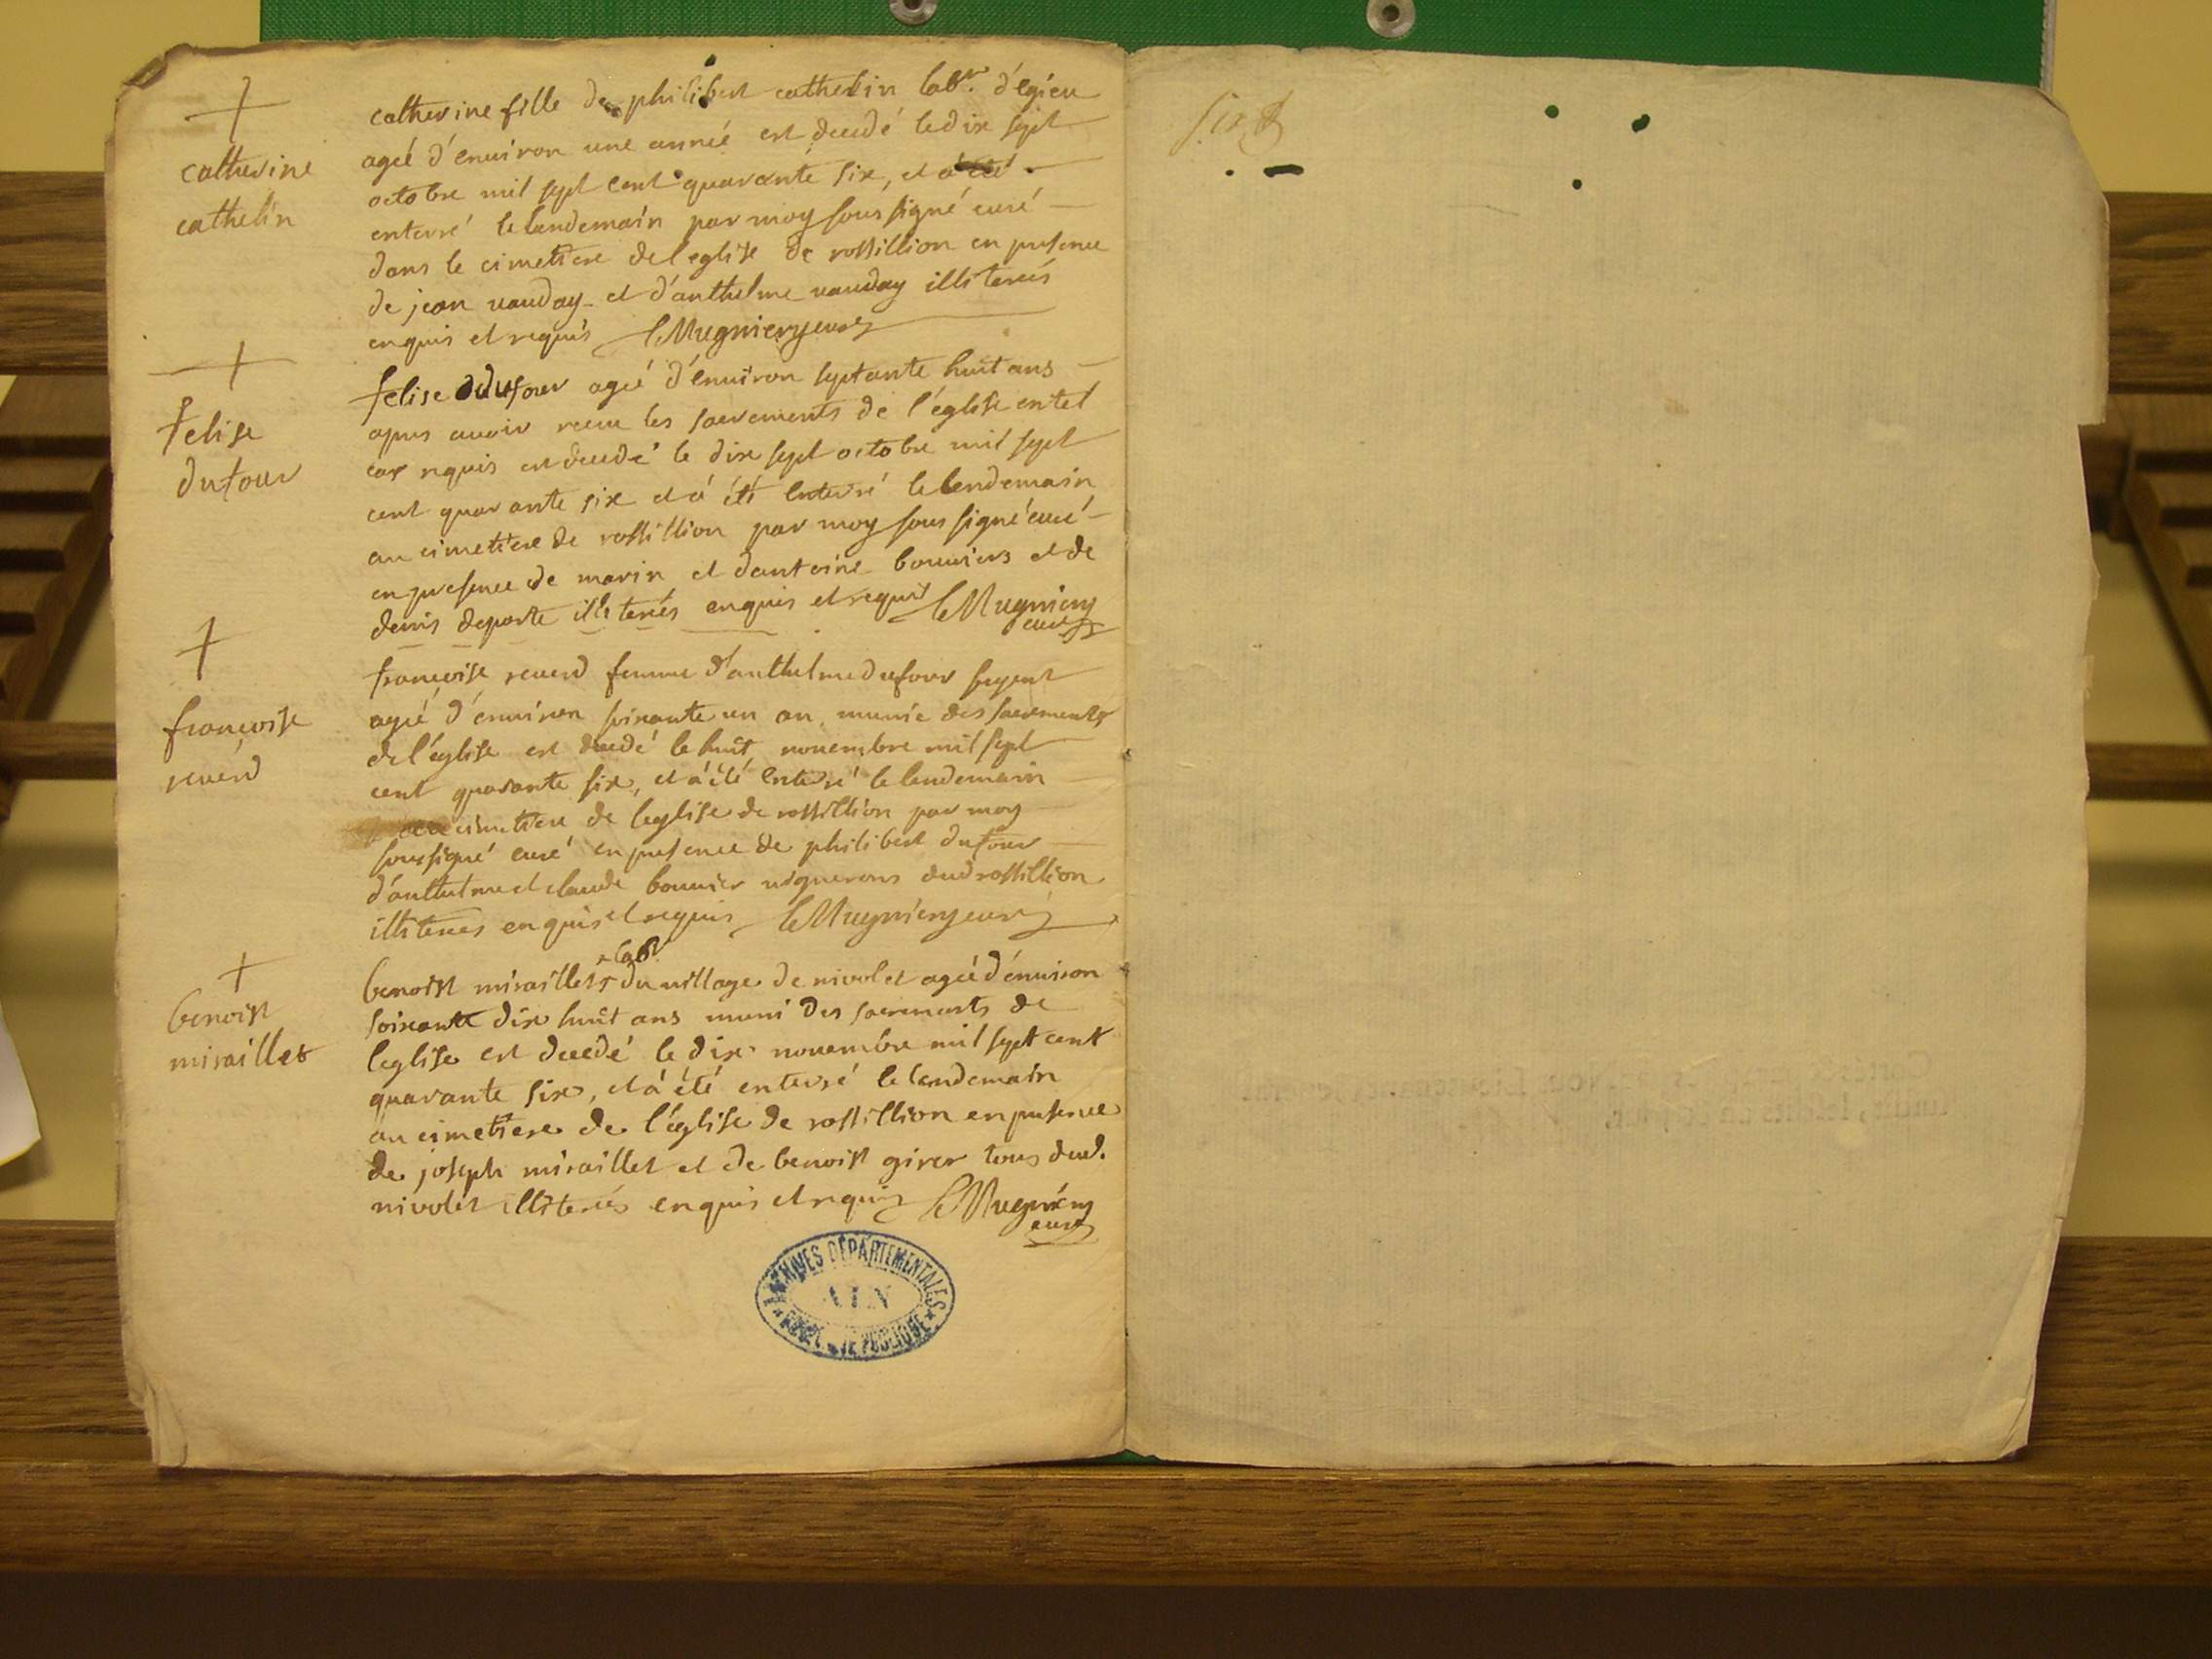 catherine
cathelin
catherine fille de philibert cathelin labr. d'egieu
ageé d'enuiron une anneé est decedé le dix sept
octobre mil sept cent quarante six, et a été
enterré le lendemain par moy soussigné curé
dans le cimetiere de l'eglise de rossillion en presence
de jean vauday et d'anthelme vauday illiterés
enquis et requis Mugnier curé
felise
dufour
felise dufour ageé d'enuiron septante huit ans
apres auoir receu les sacrements de l'église en tel
cas requis est decedé le dix sept octobre mil sept
cent quarante six et á été enterré le lendemain
au cimetiere de rossillion par moy sous signé curé
en presence de marin et d'antoine bouuiers et de
denis deporte illiterés enquis et requis Mugnier
curé
françoise
reuerd
françoise reuerd femme d'anthelme dufour
ageé d'enuiron soixante un an, munie des sacrements
de l'église est decedé le huit nouembre mil sept
cent quarante six, et á été enterré le lendemain
au cimetiere de leglise de rossillion par moy
soussigné curé en presence de philibert dufour
d'anthelme et claude bouuier uignerons dud rossillion
illiteres enquis et requis Mugnier curé
benoist
miraillet
labr
benoist miraillet du uillage de nivolet ageé d'enuiron
soixante dix huit ans muni des sacrements de
leglise est decedé le dix nouembre mil sept cent
quarante six, et á été enterré le lendemain
au cimetiere de l'église de rossillion en presence
de joseph miraillet et de benoist girer tous dud.
nivolet illiterés enquis et requis Mugnier
curé
ARCHIVES DÉPARTEMENTALES
AIN
six